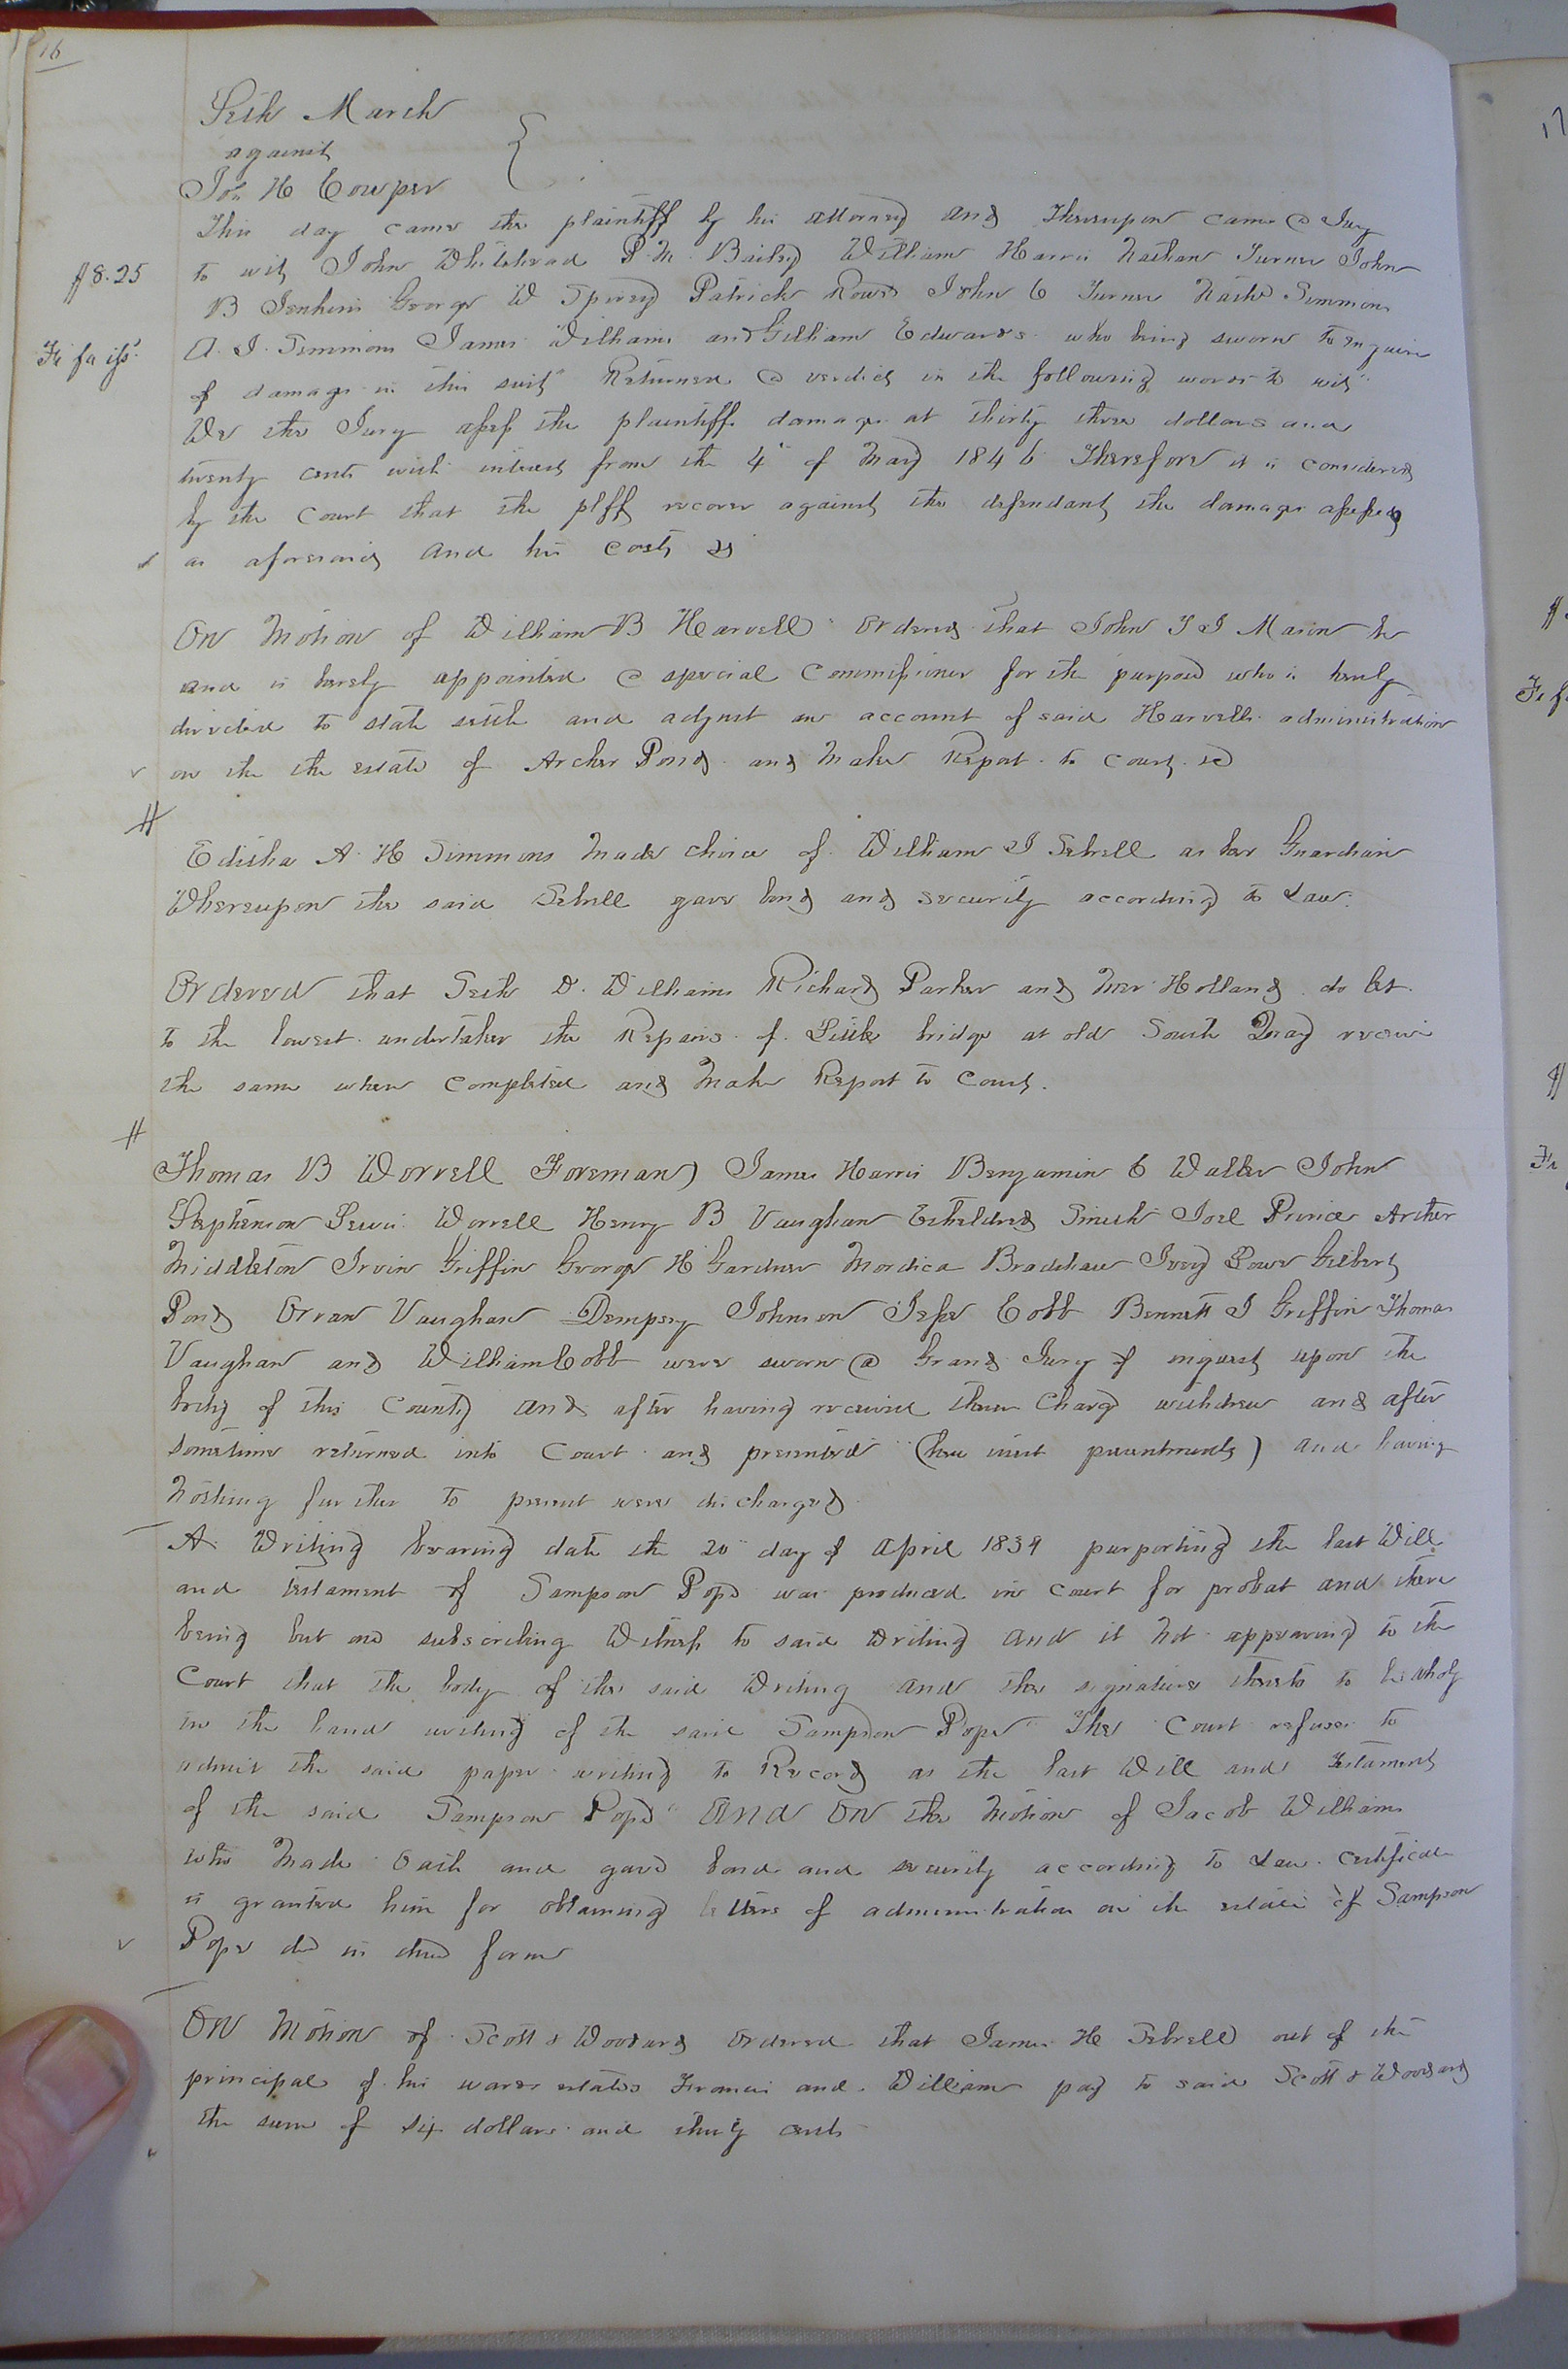 16
Seth March
against
Jos H Cowper
This day came the plaintiff by his attorney and Thereupon came a Jury
$8.25
to wit John Whitehead P. M. Bailey William Harris Nathan Turner John
B Jenkins George W Spivey Patrick Rowe John C Turner Simmons
Fi fa iss
A. J. Simmons James Williams and Gilliam Edwards who being sworn to enquire
of damage in this suit Returned a verdict in the following words to wit
We the Jury assess the plaintiffs damage at thirty three dollars and
twenty cents with interest from the 4" of May 1846 Therefore it is considered
by the Court that the plff recover against the defendant the damage assessed
as aforesaid and his costs &
On Motion of William B Harvell ordered that John T J Mason be
and is hereby appointed a special Commissioner for the purpose who is hereby
directed to state settle and adjust an account of said Harvells administration
on the the estate of Archer Pond and Make Report to Court &c
Edisha A. H Simmons Made choice of William J Sebrell as her Guardian
Whereupon the said Sebrell gave bond and security according to Law.
Ordered that Seth D. Williams Richard Parker and Holland do let
to the lowest undertaker the Repairs of Little bridge at old South Quay receive
the same when Completed and Make Report to Court.
Thomas B Worrell Foreman) James Harris Benjamin C Walker John
Stephenson Lewis Worrell Henry B Vaughan Etheldred Smith Joel Prince Archer
Middleton Irvin Griffin George H Gardner Mordica Bradshaw Ivey Rowe Gilbert
Pond Orran Vaughan Dempsey Johnson Jesse Cobb Bennett J Griffin Thomas
Vaughan and William Cobb were sworn a Grand Jury of inquest upon the
body of this County and after having received their Charge withdrew and after
sometime returned into Court and presented (here insert presentments) and having
Nothing further to present were discharged
A Writing bearing date the 20" day of April 1839 purporting the last Will
and testament of Sampson Pope was produced in Court for probat and there
being but one subscribing Witness to said Writing and it Not appearing to the
Court that the body of the said Writing and the signature thereto to be wholy
in the hand writing of the said Sampson Pope The Court refuses to
admit the said paper writing to Record as the last Will and testament
of the said Sampson Pope And On the Motion of Jacob Williams
who Made Oath and gave bond and security according to Law. Certificate
is granted him for obtaining letters of administration on the estate of Sampson
Pope dcd in due form
On Motion of Scott & Woodard Ordered that James H Sebrell out of the
principal of his wards estates Francis and William pay to said Scott & Woodard
the sum of six dollars and thirty cents